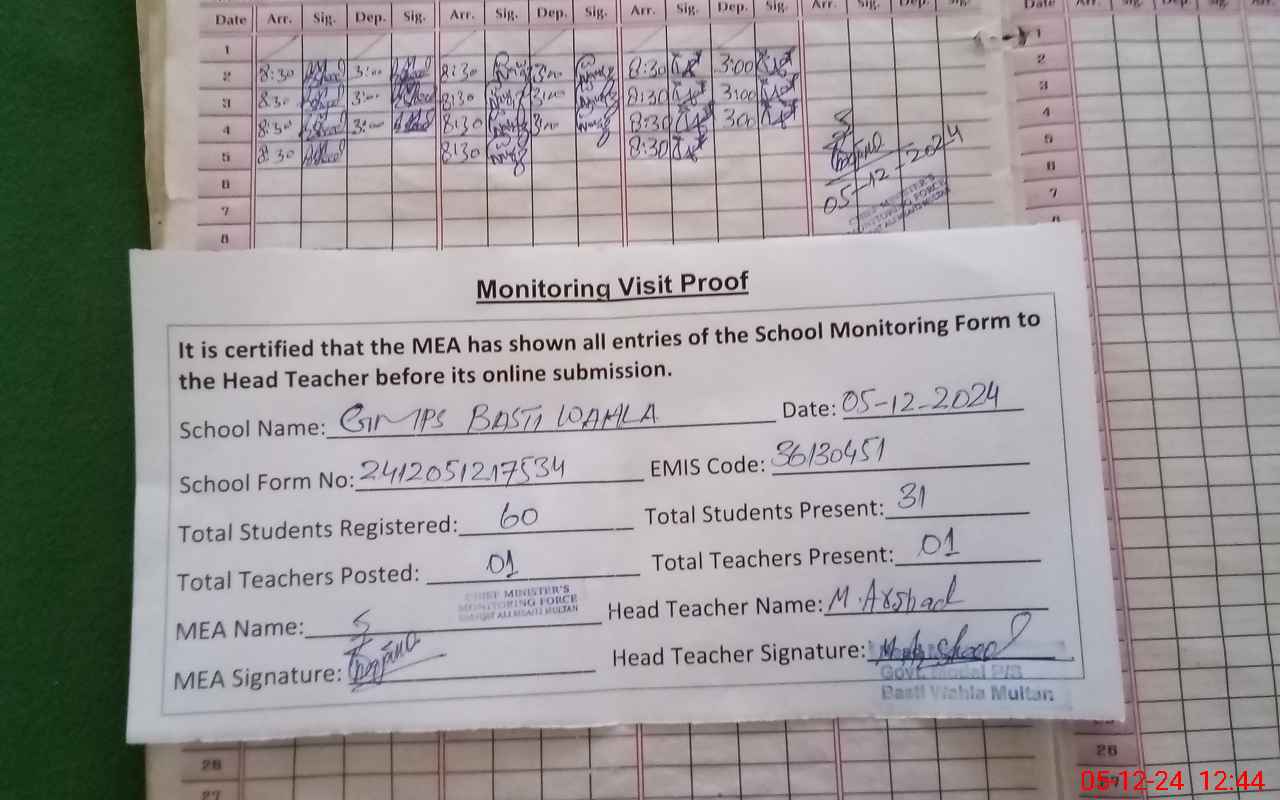 Date Arr. Sig. Dep. Sig. Arr. Sig. Dep. Sig. Arr. Sig. Dep. Sig. Arr. Sig. Dep. Sig. Date Arr. Sig. Dep. Sig. Arr.
1 1
2 8:30 3:00 8:30 3:00 8:30 3:00 2
3 8:30 3:00 8:30 3:00 8:30 3:00 3
4 8:30 3:00 8:30 3:00 8:30 3:00 4
5 8:30 8:30 8:30 5
6 6
7 7
8 8
05-12-2024
CHIEF MINISTER'S
MONITORING FORCE
Monitoring Visit Proof
It is certified that the MEA has shown all entries of the School Monitoring Form to
the Head Teacher before its online submission.
School Name: GMPS BASTI WAHLA Date: 05-12-2024
School Form No: 2412051217534 EMIS Code: 36130451
Total Students Registered: 60 Total Students Present: 31
Total Teachers Posted: 01 Total Teachers Present: 01
CHIEF MINISTER'S
MONITORING FORCE
MULTAN
MEA Name: Head Teacher Name: M. Arshad
MEA Signature: Head Teacher Signature:
Govt. Model P/S
Basti Wahla Multan
26 26
27
05-12-24 12:44